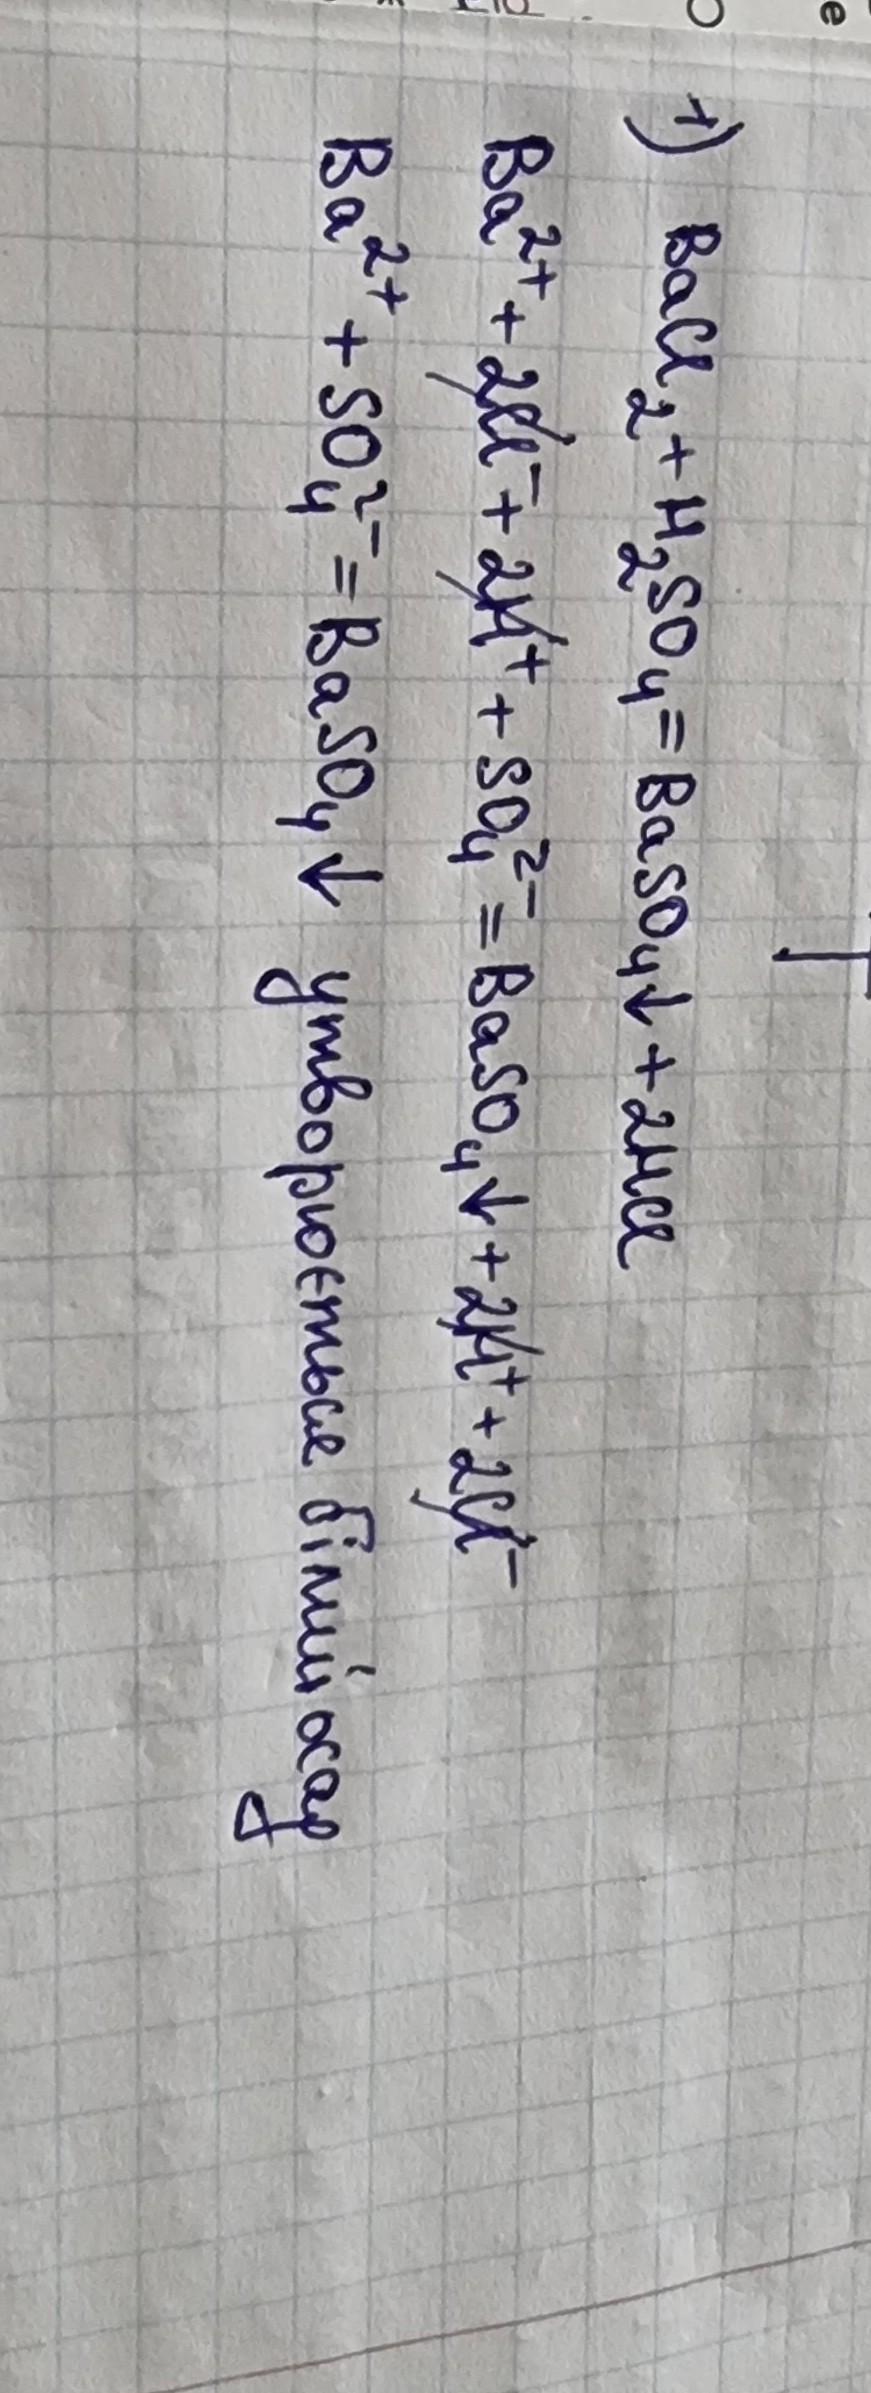 1) BaCl₂ + H₂SO₄ = BaSO₄↓ + 2HCl
Ba²⁺ + 2Cl⁻ + 2H⁺ + SO₄²⁻ = BaSO₄↓ + 2H⁺ + 2Cl⁻
Ba²⁺ + SO₄²⁻ = BaSO₄↓ утворюється білий осад